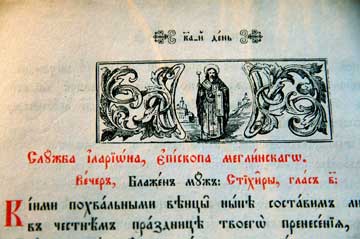 к҃а-й день
Слꙋжба і҆ларїѡ́на, є҆пі́скопа меглинскагѡ.
Ве́черъ, Блаже́нъ мꙋ́жъ: Стїхи̑ры, гла́съ в҃:
Кі́ими похва́льными вѣнцы̀ ны́нѣ соста́вим лю
въ че́стнѣмъ пра́здницѣ твоегѡ̀ пренесе́нїѧ,